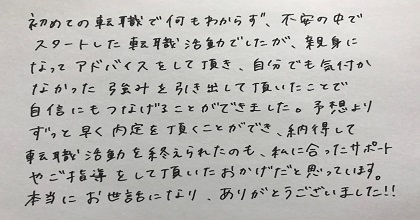 初めての転職で何もわからず、不安の中で
スタートした転職活動でしたが、親身に
なってアドバイスをして頂き、自分でも気付か
なかった強みを引き出して頂いたことで
自信にもつなげることができました。予想より
ずっと早く内定を頂くことができ、納得して
転職活動を終えられたのも、私に合ったサポート
やご指導をして頂いたおかげだと思っています。
本当にお世話になり、ありがとうございました!!